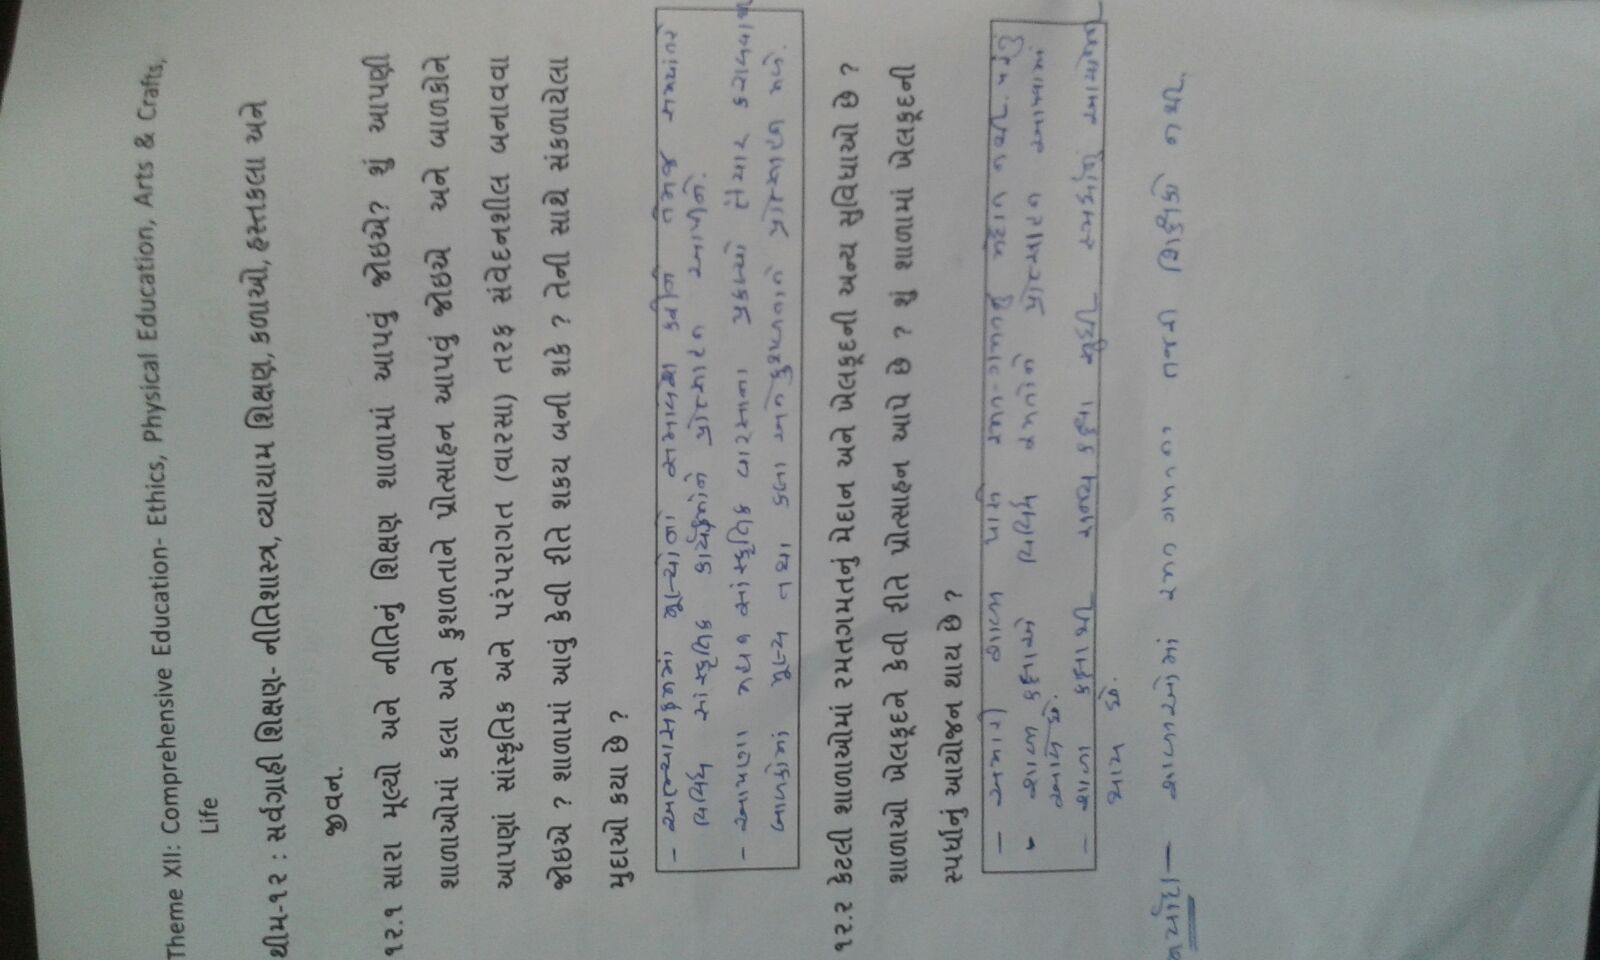 Theme XII: Comprehensive Education- Ethics, Physical Education, Arts & Crafts,
Life
થીમ-૧૨ : સર્વગ્રાહી શિક્ષણ- નીતિશાસ્ત્ર, વ્યાયામ શિક્ષણ, કળાઓ, હસ્તકલા અને
જીવન.
૧૨.૧ સારા મૂલ્યો અને નીતિનું શિક્ષણ શાળામાં આપવું જોઇએ? શું આપણી
શાળાઓમાં કલા અને કુશળતાને પ્રોત્સાહન આપવું જોઇએ અને બાળકોને
આપણાં સાંસ્કૃતિક અને પરંપરાગત (વારસા) તરફ સંવેદનશીલ બનાવવા
જોઇએ ? શાળામાં આવું કેવી રીતે શકય બની શકે ? તેની સાથે સંકળાયેલા
મુદાઓ કયા છે ?
- અભ્યાસક્રમમાં મૂલ્યોનો સમાવેશ કરીને તેમજ
વિવિધ સાંસ્કૃતિક કાર્યક્રમોને પ્રોત્સાહન આપીને.
- આપણા સાંસ્કૃતિક વારસાના પ્રકલ્પો તૈયાર કરાવવાથી
બાળકોમાં મૂલ્ય તથા કલા અને કુશળતાને પ્રોત્સાહન મળે.
૧૨.૨ કેટલી શાળાઓમાં રમતગમતનું મેદાન અને ખેલકૂદની અન્ય સુવિધાઓ છે ?
શાળાઓ ખેલકૂદને કેવી રીતે પ્રોત્સાહન આપે છે ? શું શાળામાં ખેલકૂદની
સ્પર્ધાનું આયોજન થાય છે ?
- અમારી શાળા પાસે રમત-ગમતનું મેદાન નથી. પરંતુ
- શાળા કક્ષાએ વિવિધ રમતોને પ્રોત્સાહન આપવામાં
આવે છે.
- શાળા કક્ષાથી રાજ્ય કક્ષા સુધી સ્પર્ધાનું આયોજન
થાય છે.
મર્યાદા - શાળાઓમાં રમત ગમતના તજજ્ઞ શિક્ષકો નથી.